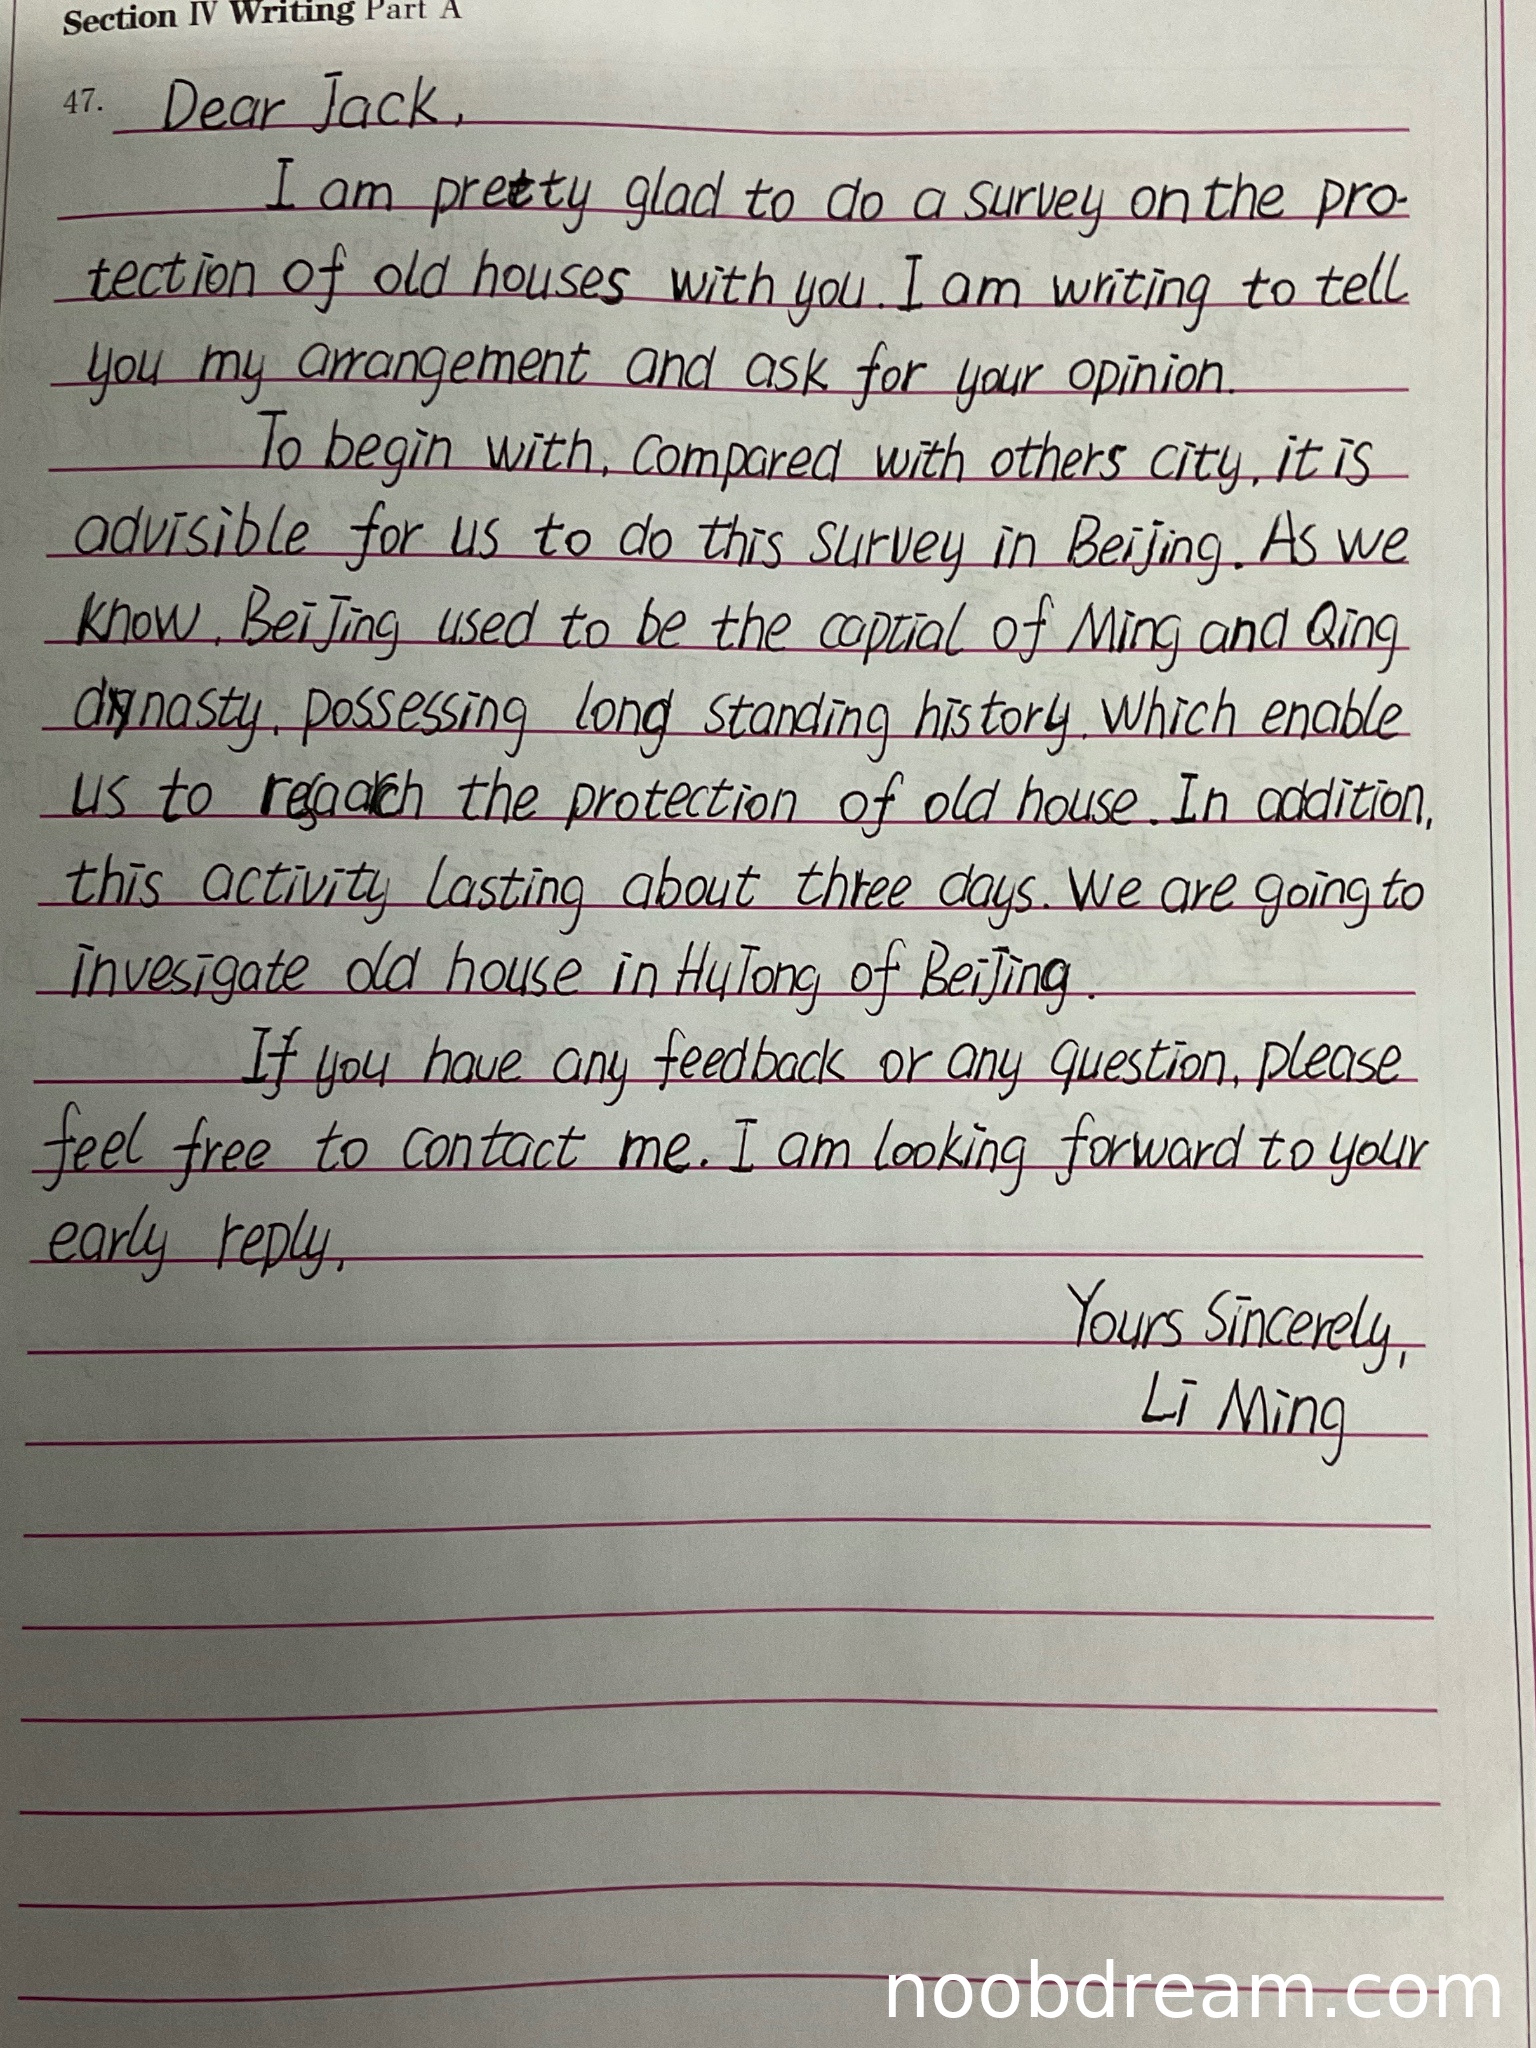 Section IV Writing Part A
47. Dear Jack,
I am pretty glad to do a survey on the pro-
tection of old houses with you. I am writing to tell
you my arrangement and ask for your opinion.
To begin with, compared with others city, it is
advisible for us to do this survey in Beijing. As we
know, BeiJing used to be the captial of Ming and Qing
dynasty, possessing long standing history. Which enable
us to the protection of old house. In addition,
this activity lasting about three days. We are going to
invesigate old house in HuTong of BeiJing.
If you have any feedback or any question, please
feel free to contact me. I am looking forward to your
early reply.
Yours Sincerely,
Li Ming
noobdream.com